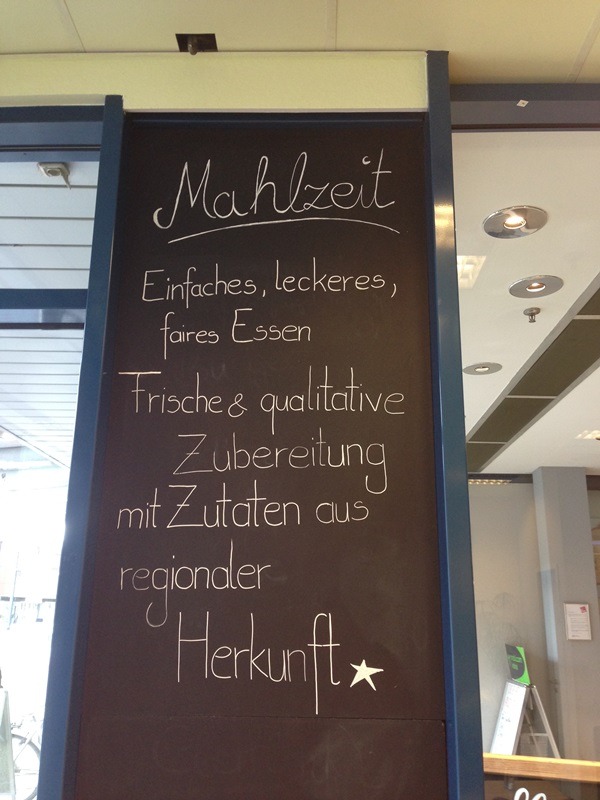 Mahlzeit
Einfaches, leckeres,
faires Essen
Frische & qualitative
Zubereitung
mit Zutaten aus
regionaler
Herkunft